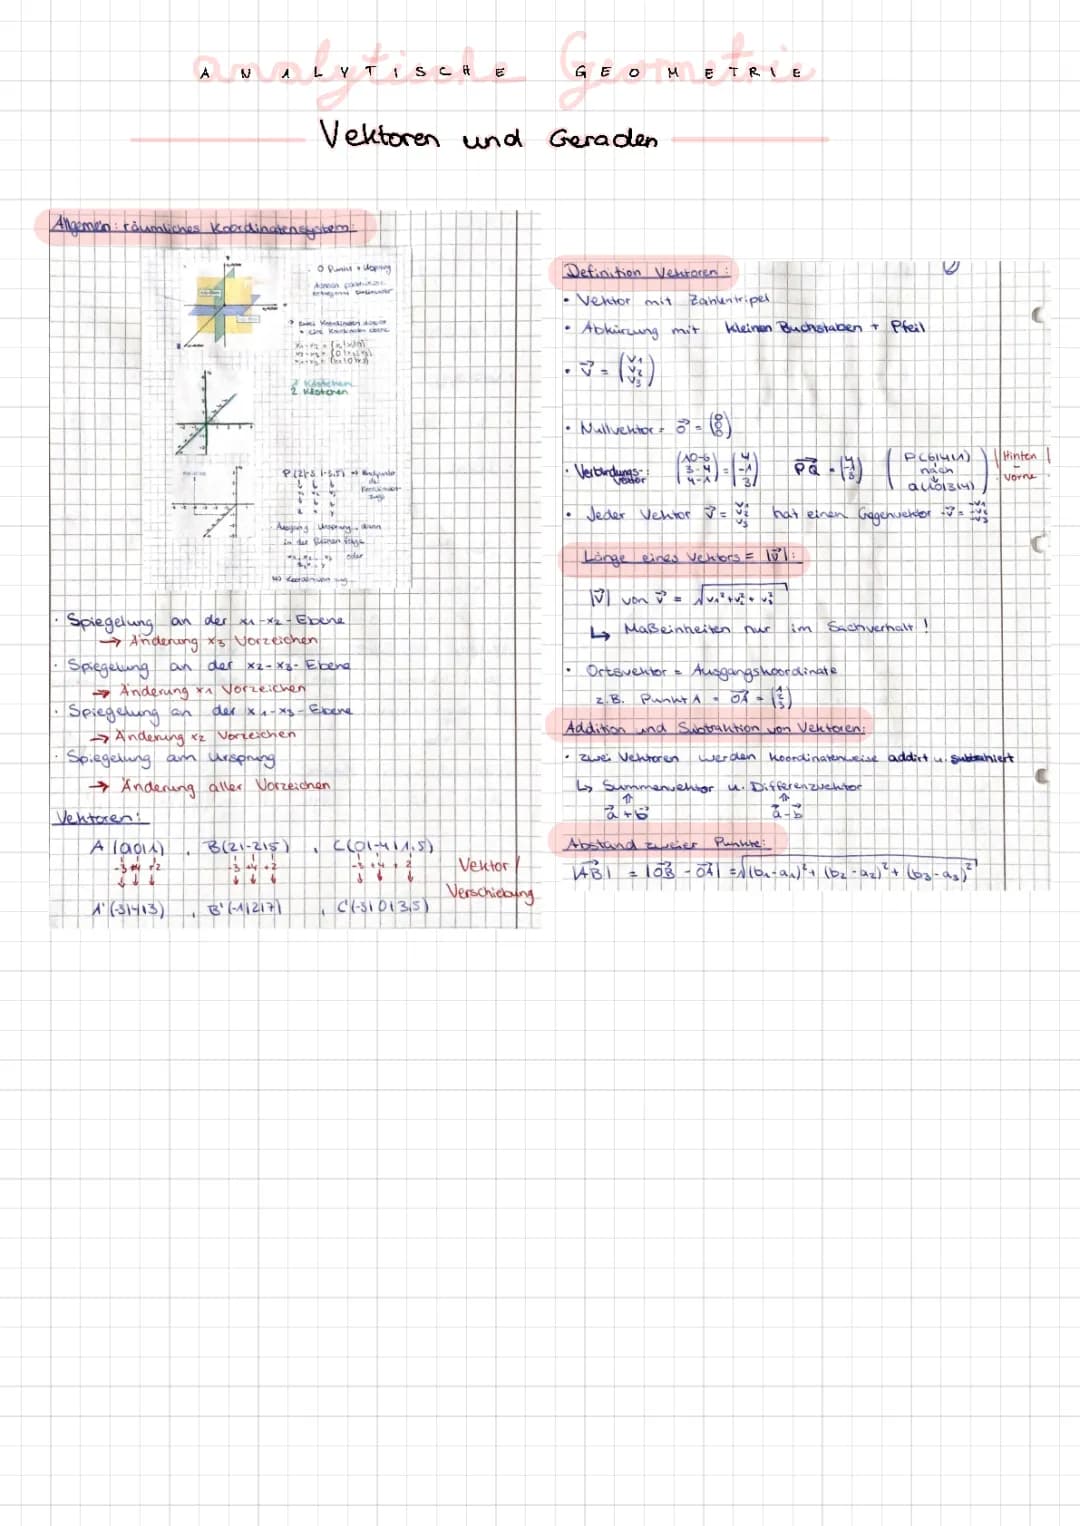 analytische Geometrie
ANALYTISCHE GEOMETRIE
Vektoren und Geraden
Allgemein: räumliches Koordinatensystem:
2 Kästchen
Spiegelung an der x1-x2-Ebene
→ Änderung x3 Vorzeichen
Spiegelung an der x2-x3-Ebene
→ Änderung x1 Vorzeichen
Spiegelung an der x1-x3-Ebene
→ Änderung x2 Vorzeichen
Spiegelung am Ursprung
→ Änderung aller Vorzeichen
Vektoren:
A (0|0|1), B(2|-2|5), C(0|-4|1,5)
-3 +4 +2 -3 +4 +2 -3 +4 +2
Vektor /
Verschiebung
A'(-3|4|3), B'(-1|2|7), C'(-3|0|3,5)
Definition Vektoren:
• Vektor mit Zahlentripel
• Abkürzung mit kleinen Buchstaben + Pfeil
• v⃗ = (v1 v2 v3)
• Nullvektor = o⃗ = (0 0 0)
• Verbindungsvektor (10-6 3-4 4-1) = (4 -1 3) PQ⃗ = (4 -1 3) (P(6|4|1) nach Q(10|3|4)) Hinten - Vorne
• Jeder Vektor v⃗ = v1 v2 v3 hat einen Gegenvektor -v⃗ = -v1 -v2 -v3
Länge eines Vektors = |v⃗|:
|v⃗| von v⃗ = √v1²+v2²+v3²
↳ Maßeinheiten nur im Sachverhalt!
• Ortsvektor = Ausgangskoordinate
z.B. Punkt A = OA⃗ = (1 2 3)
Addition und Subtraktion von Vektoren:
• zwei Vektoren werden koordinatenweise addirt u. subtrahiert
↳ Summenvektor u. Differenzvektor
a⃗+b⃗ a⃗-b⃗
Abstand zweier Punkte:
|AB⃗| = |OB⃗ - OA⃗| = √(b1-a1)²+(b2-a2)²+(b3-a3)²